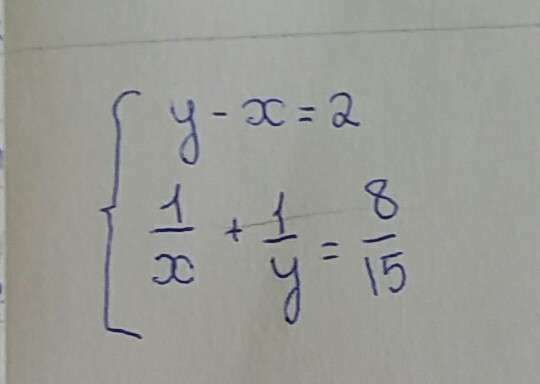 y - x = 2
1/x + 1/y = 8/15